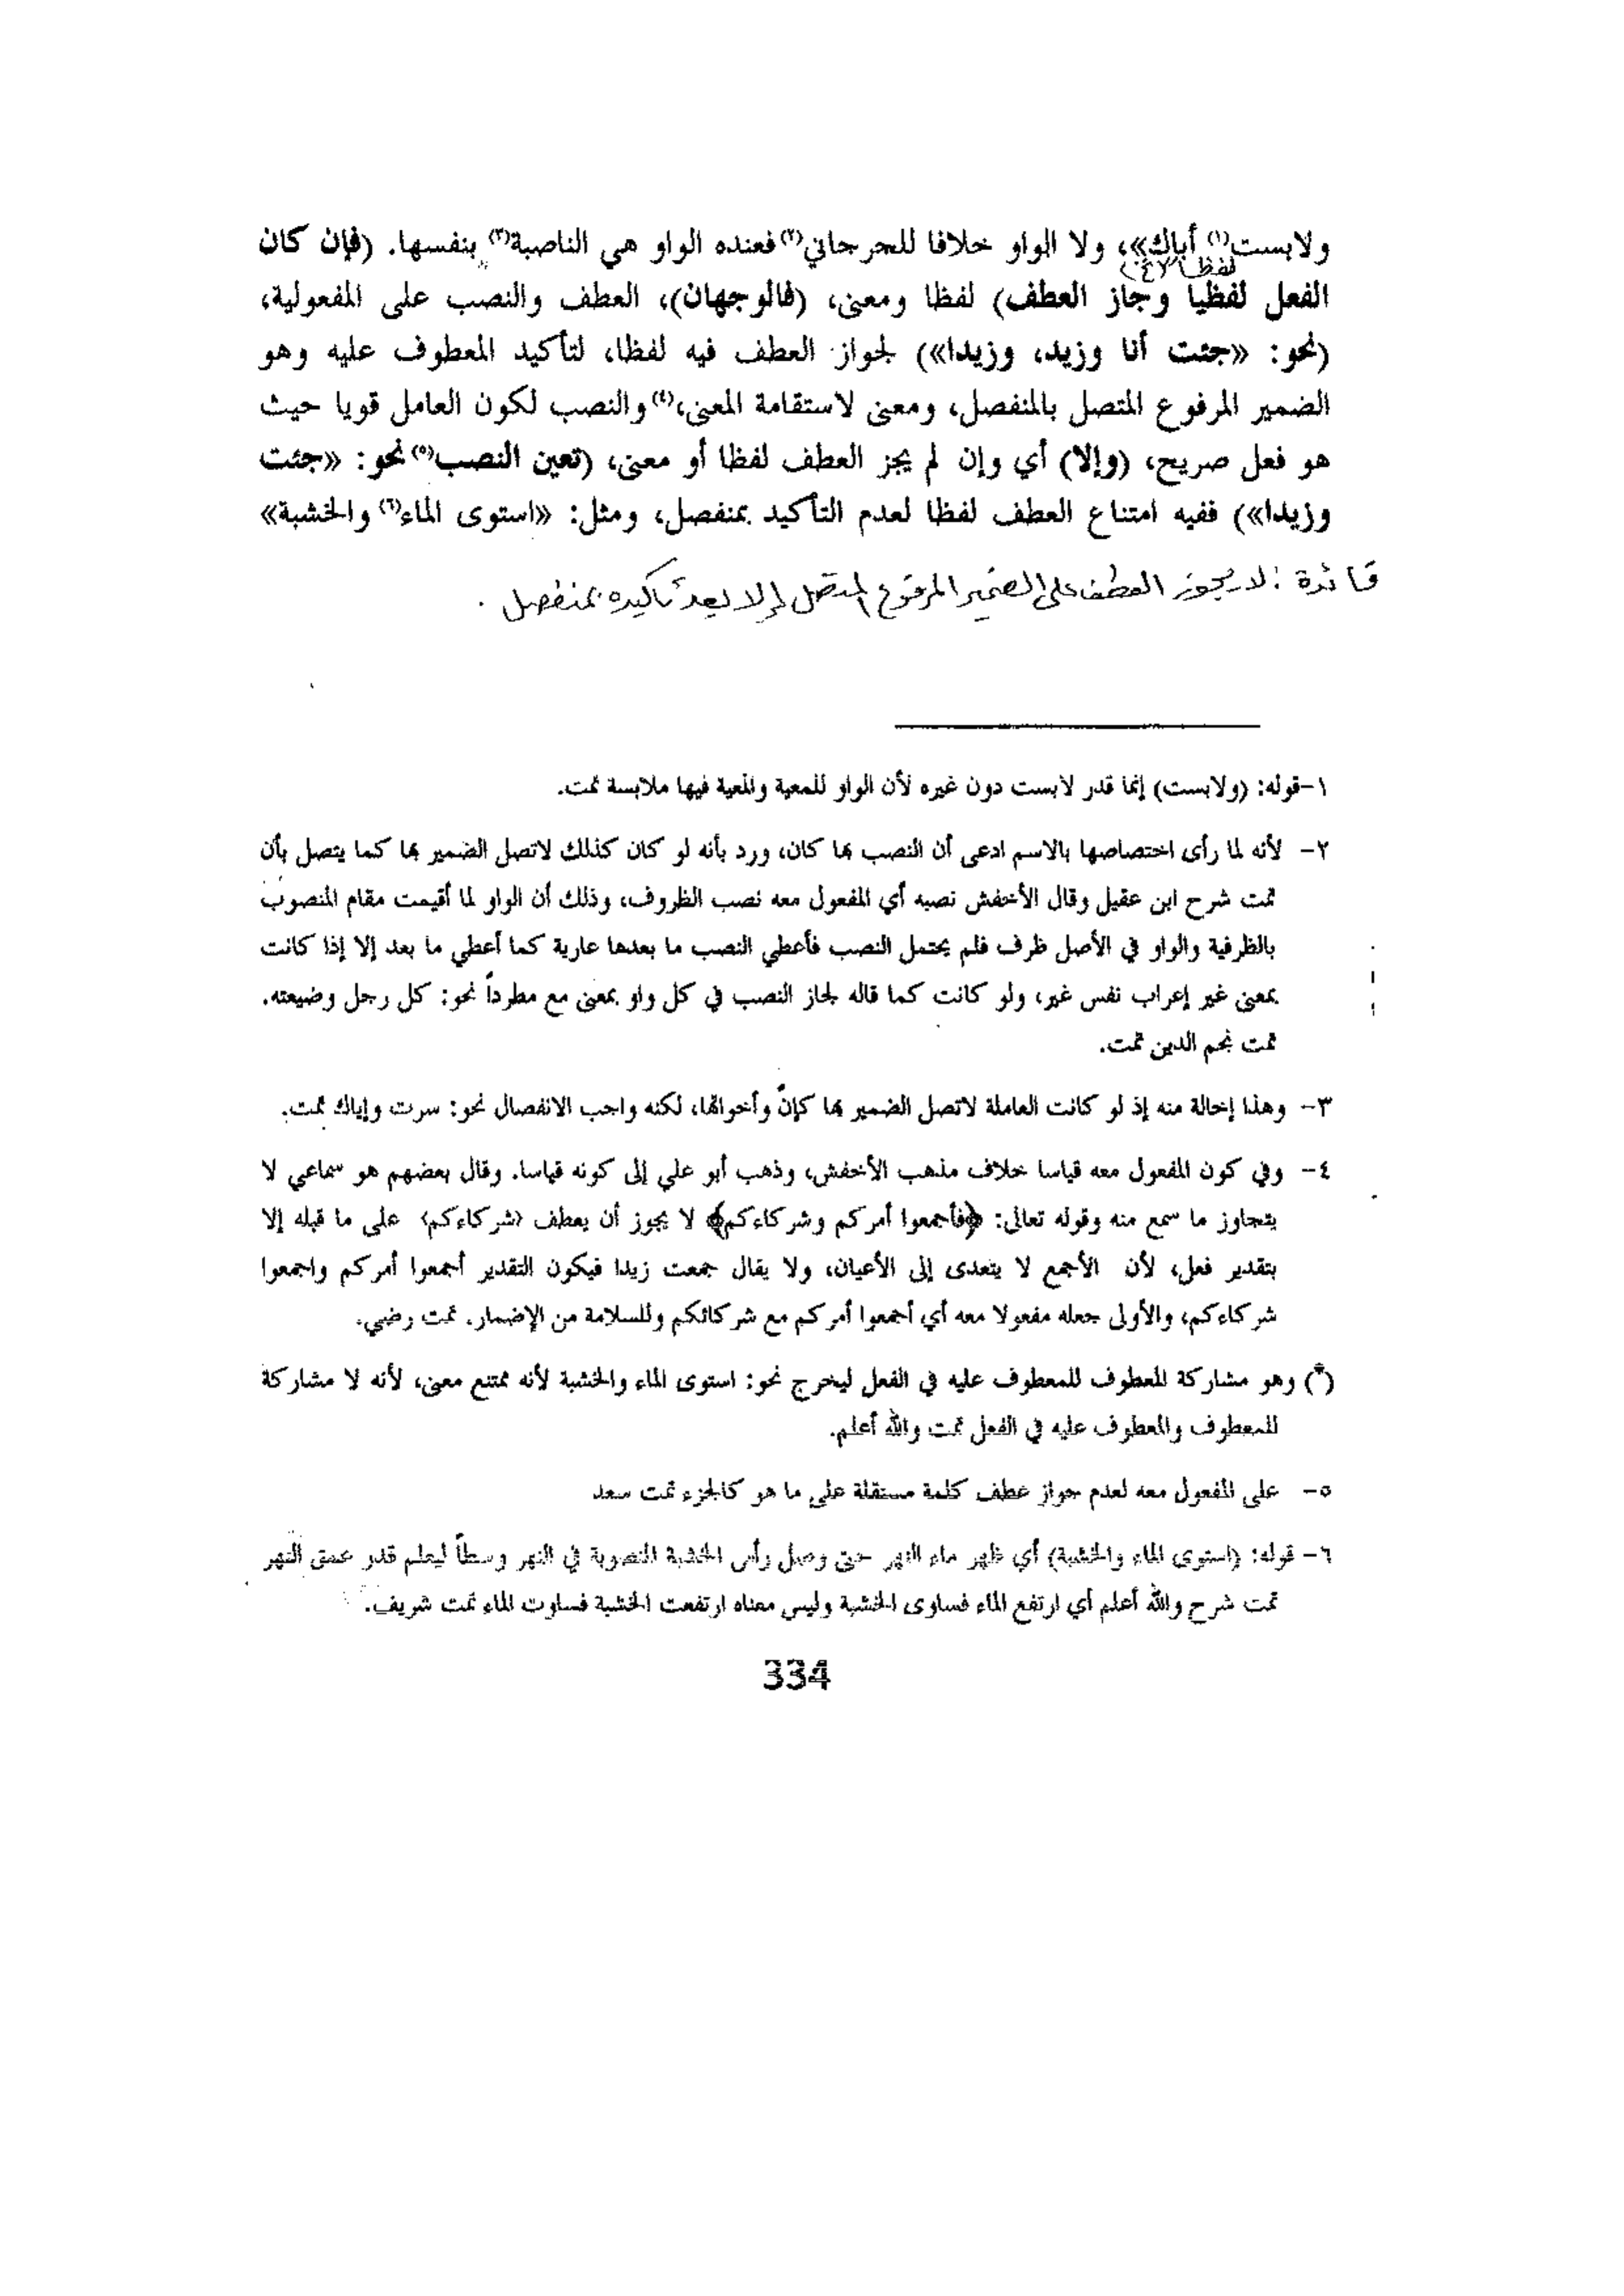 ولابست(١) أباك»، ولا الواو خلافا للجرجاني(٢) فعنده الواو هي الناصبة(٣) بنفسها. (فإن كان
لفظا
الفعل لفظيا وجاز العطف) لفظا ومعنى، (فالوجهان)، العطف والنصب على المفعولية،
(نحو: «جئت أنا وزيد، وزيدا») لجواز العطف فيه لفظا، لتأكيد المعطوف عليه وهو
الضمير المرفوع المتصل بالمنفصل، ومعنى لاستقامة المعنى،(٤) والنصب لكون العامل قويا حيث
هو فعل صريح، (وإلا) أي وإن لم يجز العطف لفظا أو معنى، (تعين النصب(٥) نحو: «جئت
وزيدا») ففيه امتناع العطف لفظا لعدم التأكيد بمنفصل، ومثل: «استوى الماء(٦) والخشبة»
فائدة: لا يجوز العطف على الضمير المرفوع المتصل إلا بعد تأكيده بمنفصل.
١-قوله: (ولابست) إنما قدر لابست دون غيره لأن الواو للمعية والمعية فيها ملابسة تمت.
٢- لأنه لما رأى اختصاصها بالاسم ادعى أن النصب بها كان، ورد بأنه لو كان كذلك لاتصل الضمير بها كما يتصل بأن
تمت شرح ابن عقيل وقال الأخفش نصبه أي المفعول معه نصب الظروف، وذلك أن الواو لما أقيمت مقام المنصوب
بالظرفية والواو في الأصل ظرف فلم يحتمل النصب فأعطي النصب ما بعدها عارية كما أعطي ما بعد إلا إذا كانت
بمعنى غير إعراب نفس غير، ولو كانت كما قاله لجاز النصب في كل واو بمعنى مع مطرداً نحو: كل رجل وضيعته.
تمت نجم الدين تمت.
٣- وهذا إحالة منه إذ لو كانت العاملة لاتصل الضمير بها كإنّ وأخواتها، لكنه واجب الانفصال نحو: سرت وإياك تمت.
٤- وفي كون المفعول معه قياسا خلاف مذهب الأخفش، وذهب أبو علي إلى كونه قياسا. وقال بعضهم هو سماعي لا
يتجاوز ما سمع منه وقوله تعالى: ﴿فأجمعوا أمركم وشركاءكم﴾ لا يجوز أن يعطف (شركاءكم) على ما قبله إلا
بتقدير فعل، لأن الأجمع لا يتعدى إلى الأعيان، ولا يقال جمعت زيدا فيكون التقدير أجمعوا أمركم واجمعوا
شركاءكم، والأولى جعله مفعولا معه أي أجمعوا أمركم مع شركائكم وللسلامة من الإضمار. تمت رضي.
(*) وهو مشاركة المعطوف للمعطوف عليه في الفعل ليخرج نحو: استوى الماء والخشبة لأنه ممتنع معنى، لأنه لا مشاركة
للمعطوف والمعطوف عليه في الفعل تمت والله أعلم.
٥- على المفعول معه لعدم جواز عطف كلمة مستقلة على ما هو كالجزء تمت سعد
٦- قوله: (استوى الماء والخشبة) أي ظهر ماء النهر حتى وصل رأس الخشبة المنصوبة في النهر وسطاً ليعلم قدر عمق النهر
تمت شرح والله أعلم أي ارتفع الماء فساوى الخشبة وليس معناه ارتفعت الخشبة فساوت الماء تمت شريف.
334